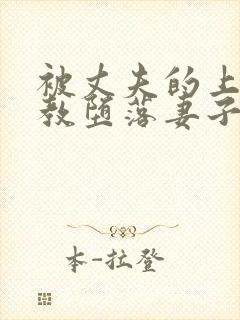 被丈夫的上
教堕落妻子
本-拉登